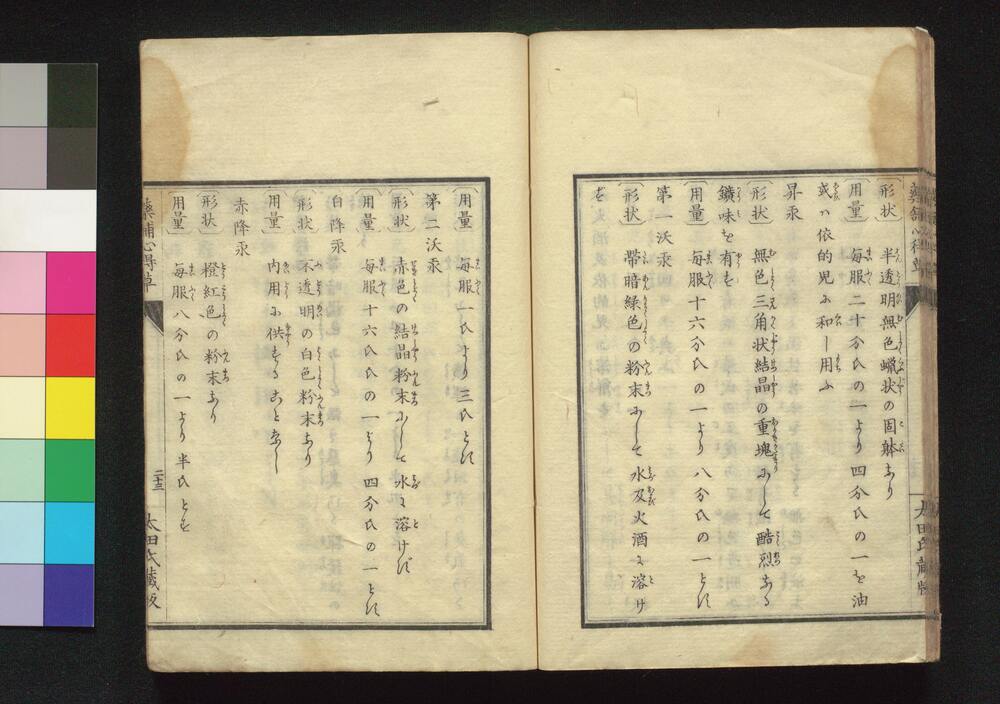 形状 半透明無色蝋状の固躰なり
用量 毎服二十分氏の一より四分氏の一を油
或ハ依的児に和し用ふ
昇汞
形状 無色三角状結晶の重塊にして酷烈なる
鑛味を有を
用量 毎服十六分氏の一より八分氏の一とす
第一沃汞
形状 帯暗緑色の粉末にして水及火酒に溶け
ず
用量 毎服一氏より三氏とす
第二沃汞
形状 赤色の結晶粉末にして水に溶けず
用量 毎服十六氏の一より四分氏の一とす
白降汞
形状 不透明の白色粉末なり
用量 内用に供することなし
赤降汞
形状 橙紅色の粉末なり
用量 毎服八分氏の一より半氏とす
藥舗心得草 二十三 太田氏蔵版